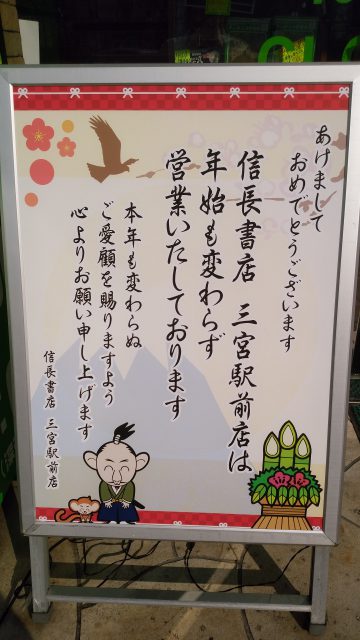 あけまして
おめでとうございます
信長書店 三宮駅前店は
年始も変わらず
営業いたしております
本年も変わらぬ
ご愛顧を賜りますよう
心よりお願い申し上げます
信長書店 三宮駅前店